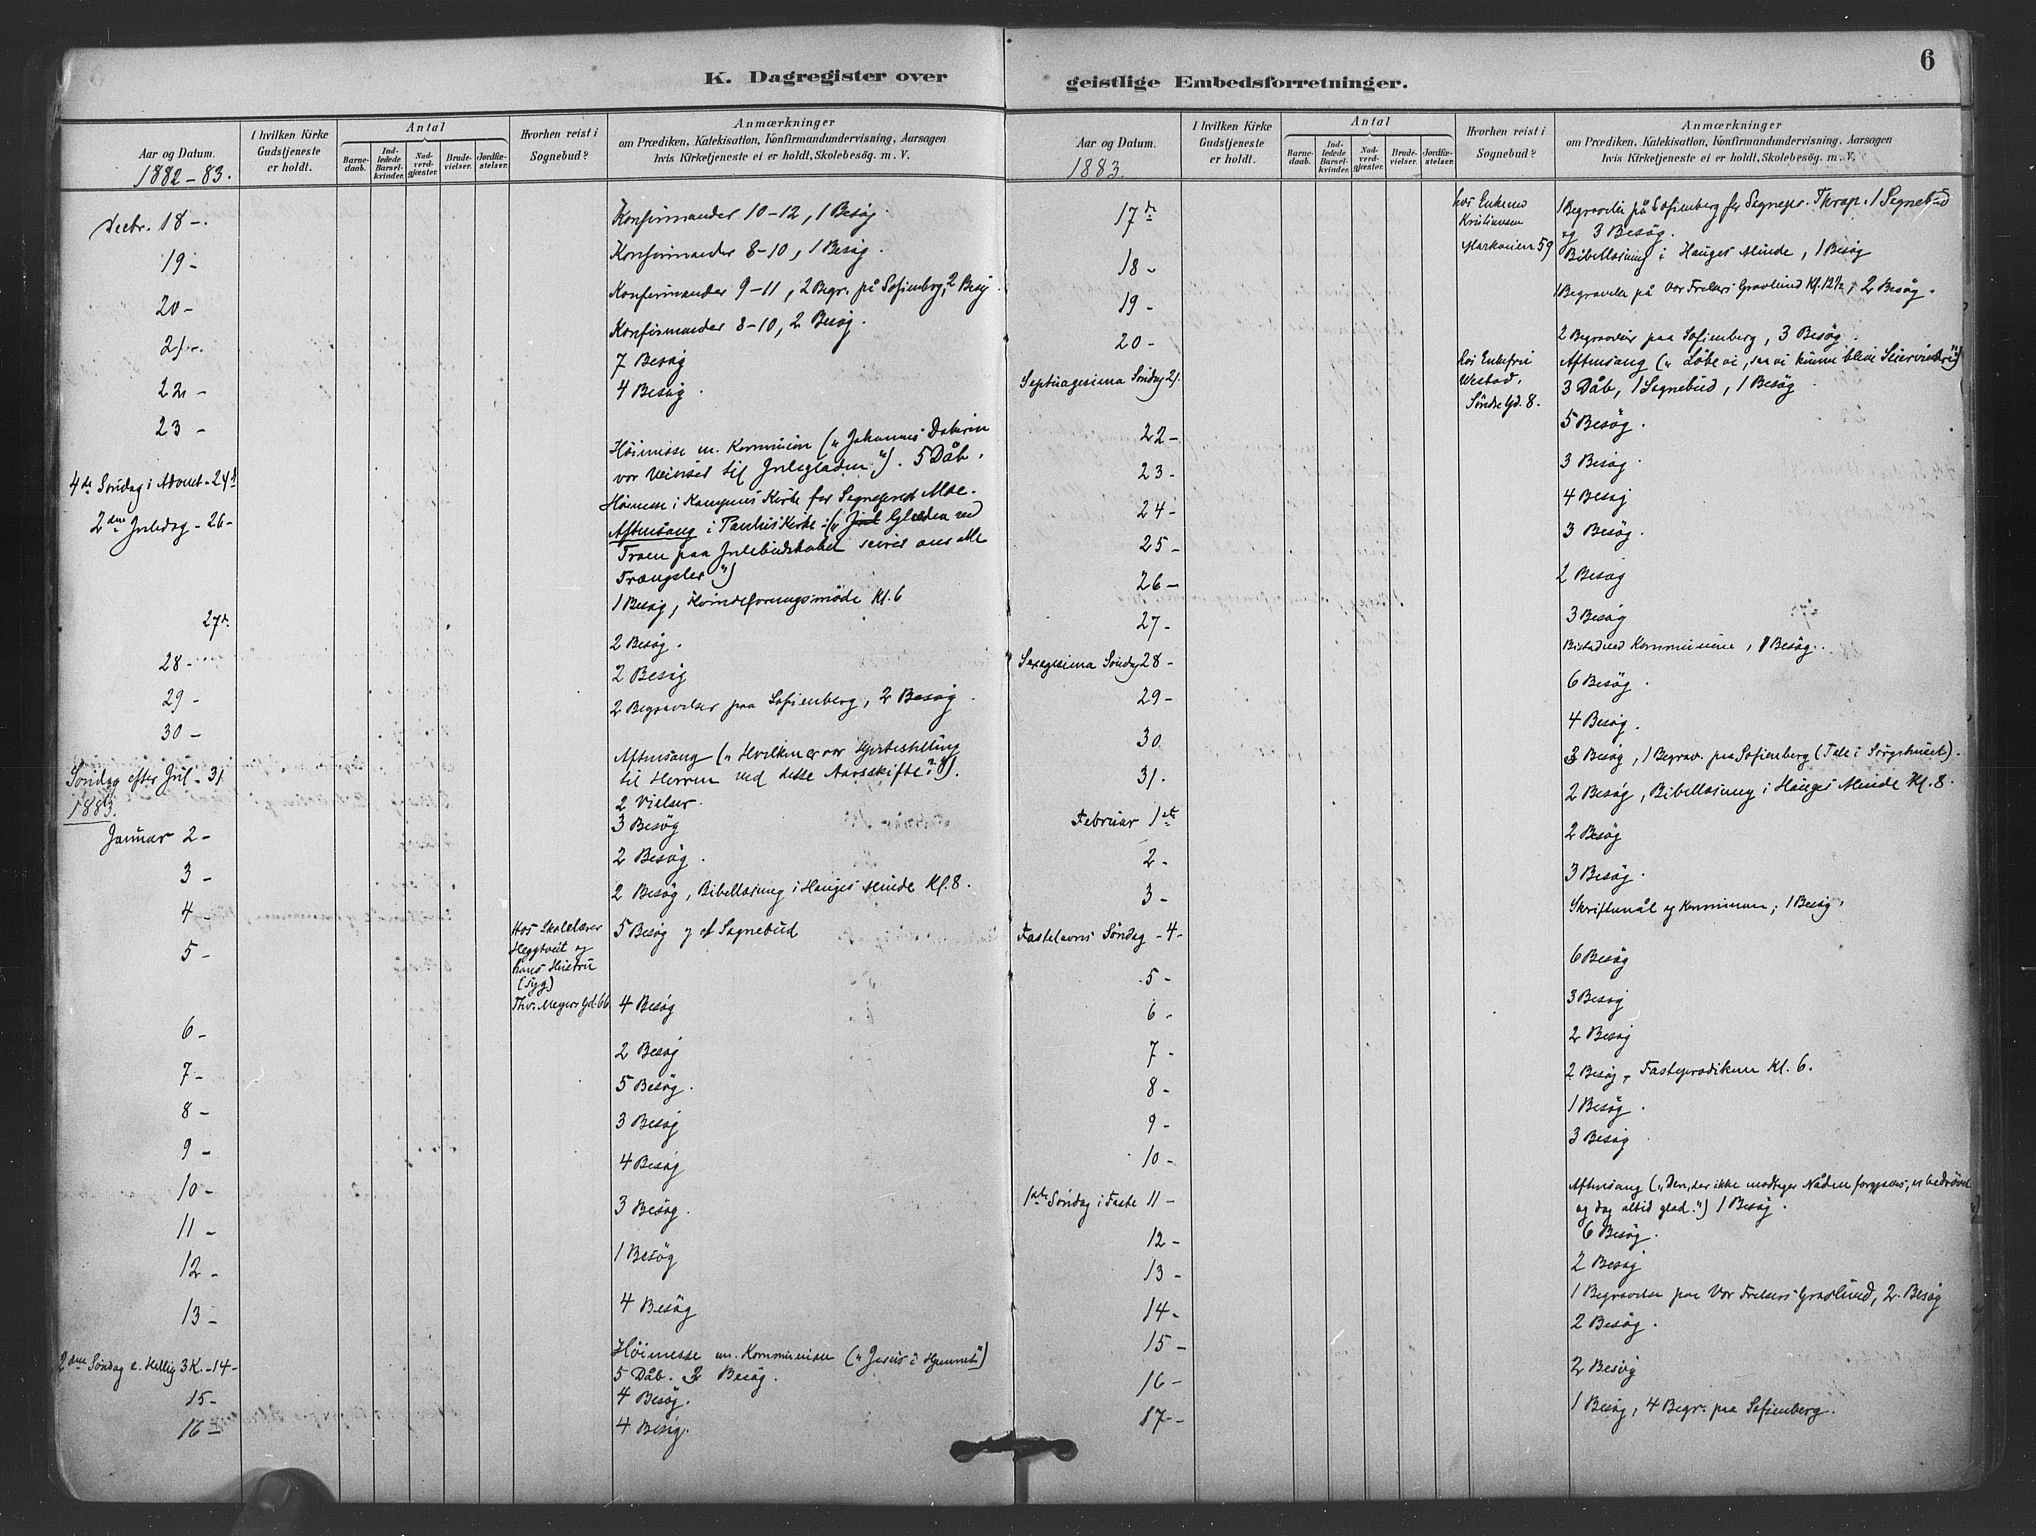 K. Dagregister over
Aar og Datum.
1882-83.
I hvilken Kirke
Gudstjeneste
er holdt.
Antal
Barne-
daab.
Ind-
ledede
Barsel-
kvinder.
Nad-
verd-
gjæster.
Brude-
vielser.
Jordfæ-
stelser.
Hvorhen reist i
Sognebud?
Anmærkninger
om Prædiken, Katekisation, Konfirmandundervisning, Aarsagen
hvis Kirketjeneste ei er holdt, Skolebesøg. m. V.
Decbr. 18 -. Konfirmander 10-12, 1 Besøg.
19 - Konfirmander 8-10, 1 Besøg.
20 - Konfirmander 9-11, 2 Begr. på Sofienberg, 2 Besøg.
21 -. Konfirmander 8-10, 2 Besøg.
7 Besøg
22 - 4 Besøg.
23 -
4de Søndag i Advent - 24de Høimesse m. Kommunion („Johannes Døberen
vor Veiviser til Juleglæden"). 5 Dåb.
2den Juledag - 26 - Høimesse i Kampens Kirke for Sognepræst Moe.
Aftensang i Pauluskirke („Glæden ved
Troen paa Julebudskabet seirer over alle
Trængsler")
27de 1 Besøg, Kvindeforeningsmøde Kl. 6
28 - 2 Besøg.
29 - 2 Besøg
30 - 2 Begravelser paa Sofienberg, 2 Besøg.
Søndag efter Jul - 31 Aftensang („Hvilken er vor Hjertestilling
til Herren ved dette Aarsskifte?").
2 Vielser.
1883.
Januar 2 - 3 Besøg
3 - 2 Besøg.
4 - 2 Besøg, Bibellæsning i Hauges Minde Kl. 8.
5 - Hos Skolelærer
Heggtveit og
hans Hustru
(syg)
Thv. Meyers Gd. 66
5 Besøg og et Sognebud
6 - 4 Besøg
7 - 2 Besøg
8 - 5 Besøg.
9 - 3 Besøg
10 - 4 Besøg
11 - 3 Besøg.
12 - 1 Besøg
13 - 4 Besøg
2den Søndag e. Hellig 3 K. - 14 - Høimesse m. Kommunion („Jesus i Hjemmet")
5 Dåb. 3 Besøg.
15 - 4 Besøg.
16 - 4 Besøg.
geistlige Embedsforretninger.
6
Aar og Datum.
1883.
I hvilken Kirke
Gudstjeneste
er holdt.
Antal
Barne-
daab.
Ind-
ledede
Barsel-
kvinder.
Nad-
verd-
gjæster.
Brude-
vielser.
Jordfæ-
stelser.
Hvorhen reist i
Sognebud?
Anmærkninger
om Prædiken, Katekisation, Konfirmandundervisning, Aarsagen
hvis Kirketjeneste ei er holdt, Skolebesøg. m. V.
17de hos Enkemd
Kristiansen
Markveien 59
1 Begravelse på Sofienberg for Sognepr. Thrap. 1 Sognebud
og 3 Besøg.
18 - Bibellæsning i Hauges Minde, 1 Besøg
19 - 1 Begravelse på Vor Frelsers Gravlund Kl. 12½, 2 Besøg.
20 - 2 Begravelser paa Sofienberg, 3 Besøg.
Septuagesima Søndag 21. hos Enkefru
Westad,
Søndre Gd. 8.
Aftensang („Løbe vi, saa vi kunne blive Seiervindere")
3 Dåb, 1 Sognebud, 1 Besøg.
22 - 5 Besøg.
23 - 3 Besøg.
24 - 4 Besøg
25 - 3 Besøg.
26 - 2 Besøg
27 - 3 Besøg
Sexagesima Søndag 28 - Bistod ved Kommunion, 1 Besøg.
29 - 6 Besøg.
30 4 Besøg.
3 Besøg, 1 Begrav. paa Sofienberg (Tale i Sørgehuset).
31. 2 Besøg, Bibellæsning i Hauges Minde Kl. 8.
Februar 1ste 2 Besøg
2 - 3 Besøg.
3 -
Fastelavns Søndag - 4 - Skriftemål og Kommunion, 1 Besøg.
5 - 6 Besøg
6 - 3 Besøg
7 - 2 Besøg
8 - 2 Besøg, Fasteprædiken Kl. 6.
9 - 1 Besøg.
10 - 3 Besøg
1ste Søndag i Faste 11 - Aftensang („Den, der ikke modtager Nåden forgjæves, er bedrøvet
og dog altid glad.") 1 Besøg.
12 - 6 Besøg.
13 - 2 Besøg
14 - 1 Begravelse paa Vor Frelsers Gravlund, 2 Besøg
15 - 2 Besøg.
16 - 2 Besøg
17 - 1 Besøg, 4 Begr. paa Sofienberg.